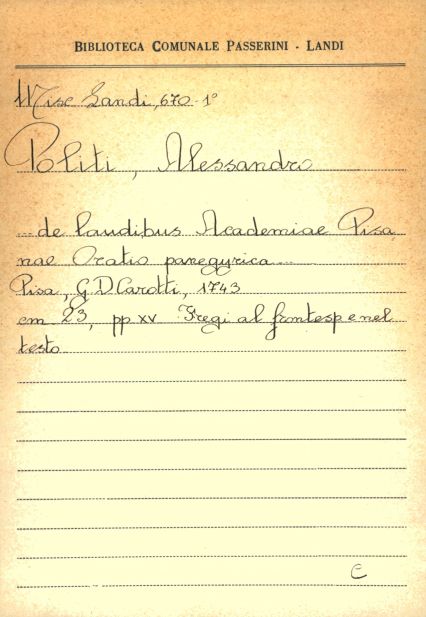 BIBLIOTECA COMUNALE PASSERINI - LANDI
Misc Landi, 670-1°
Politi, Alessandro
... de laudibus Academiae Pisa
nae Oratio panegyrica ...
Pisa, G D Carotti, 1743
cm 23, pp xv Fregi al frontesp e nel
testo
C